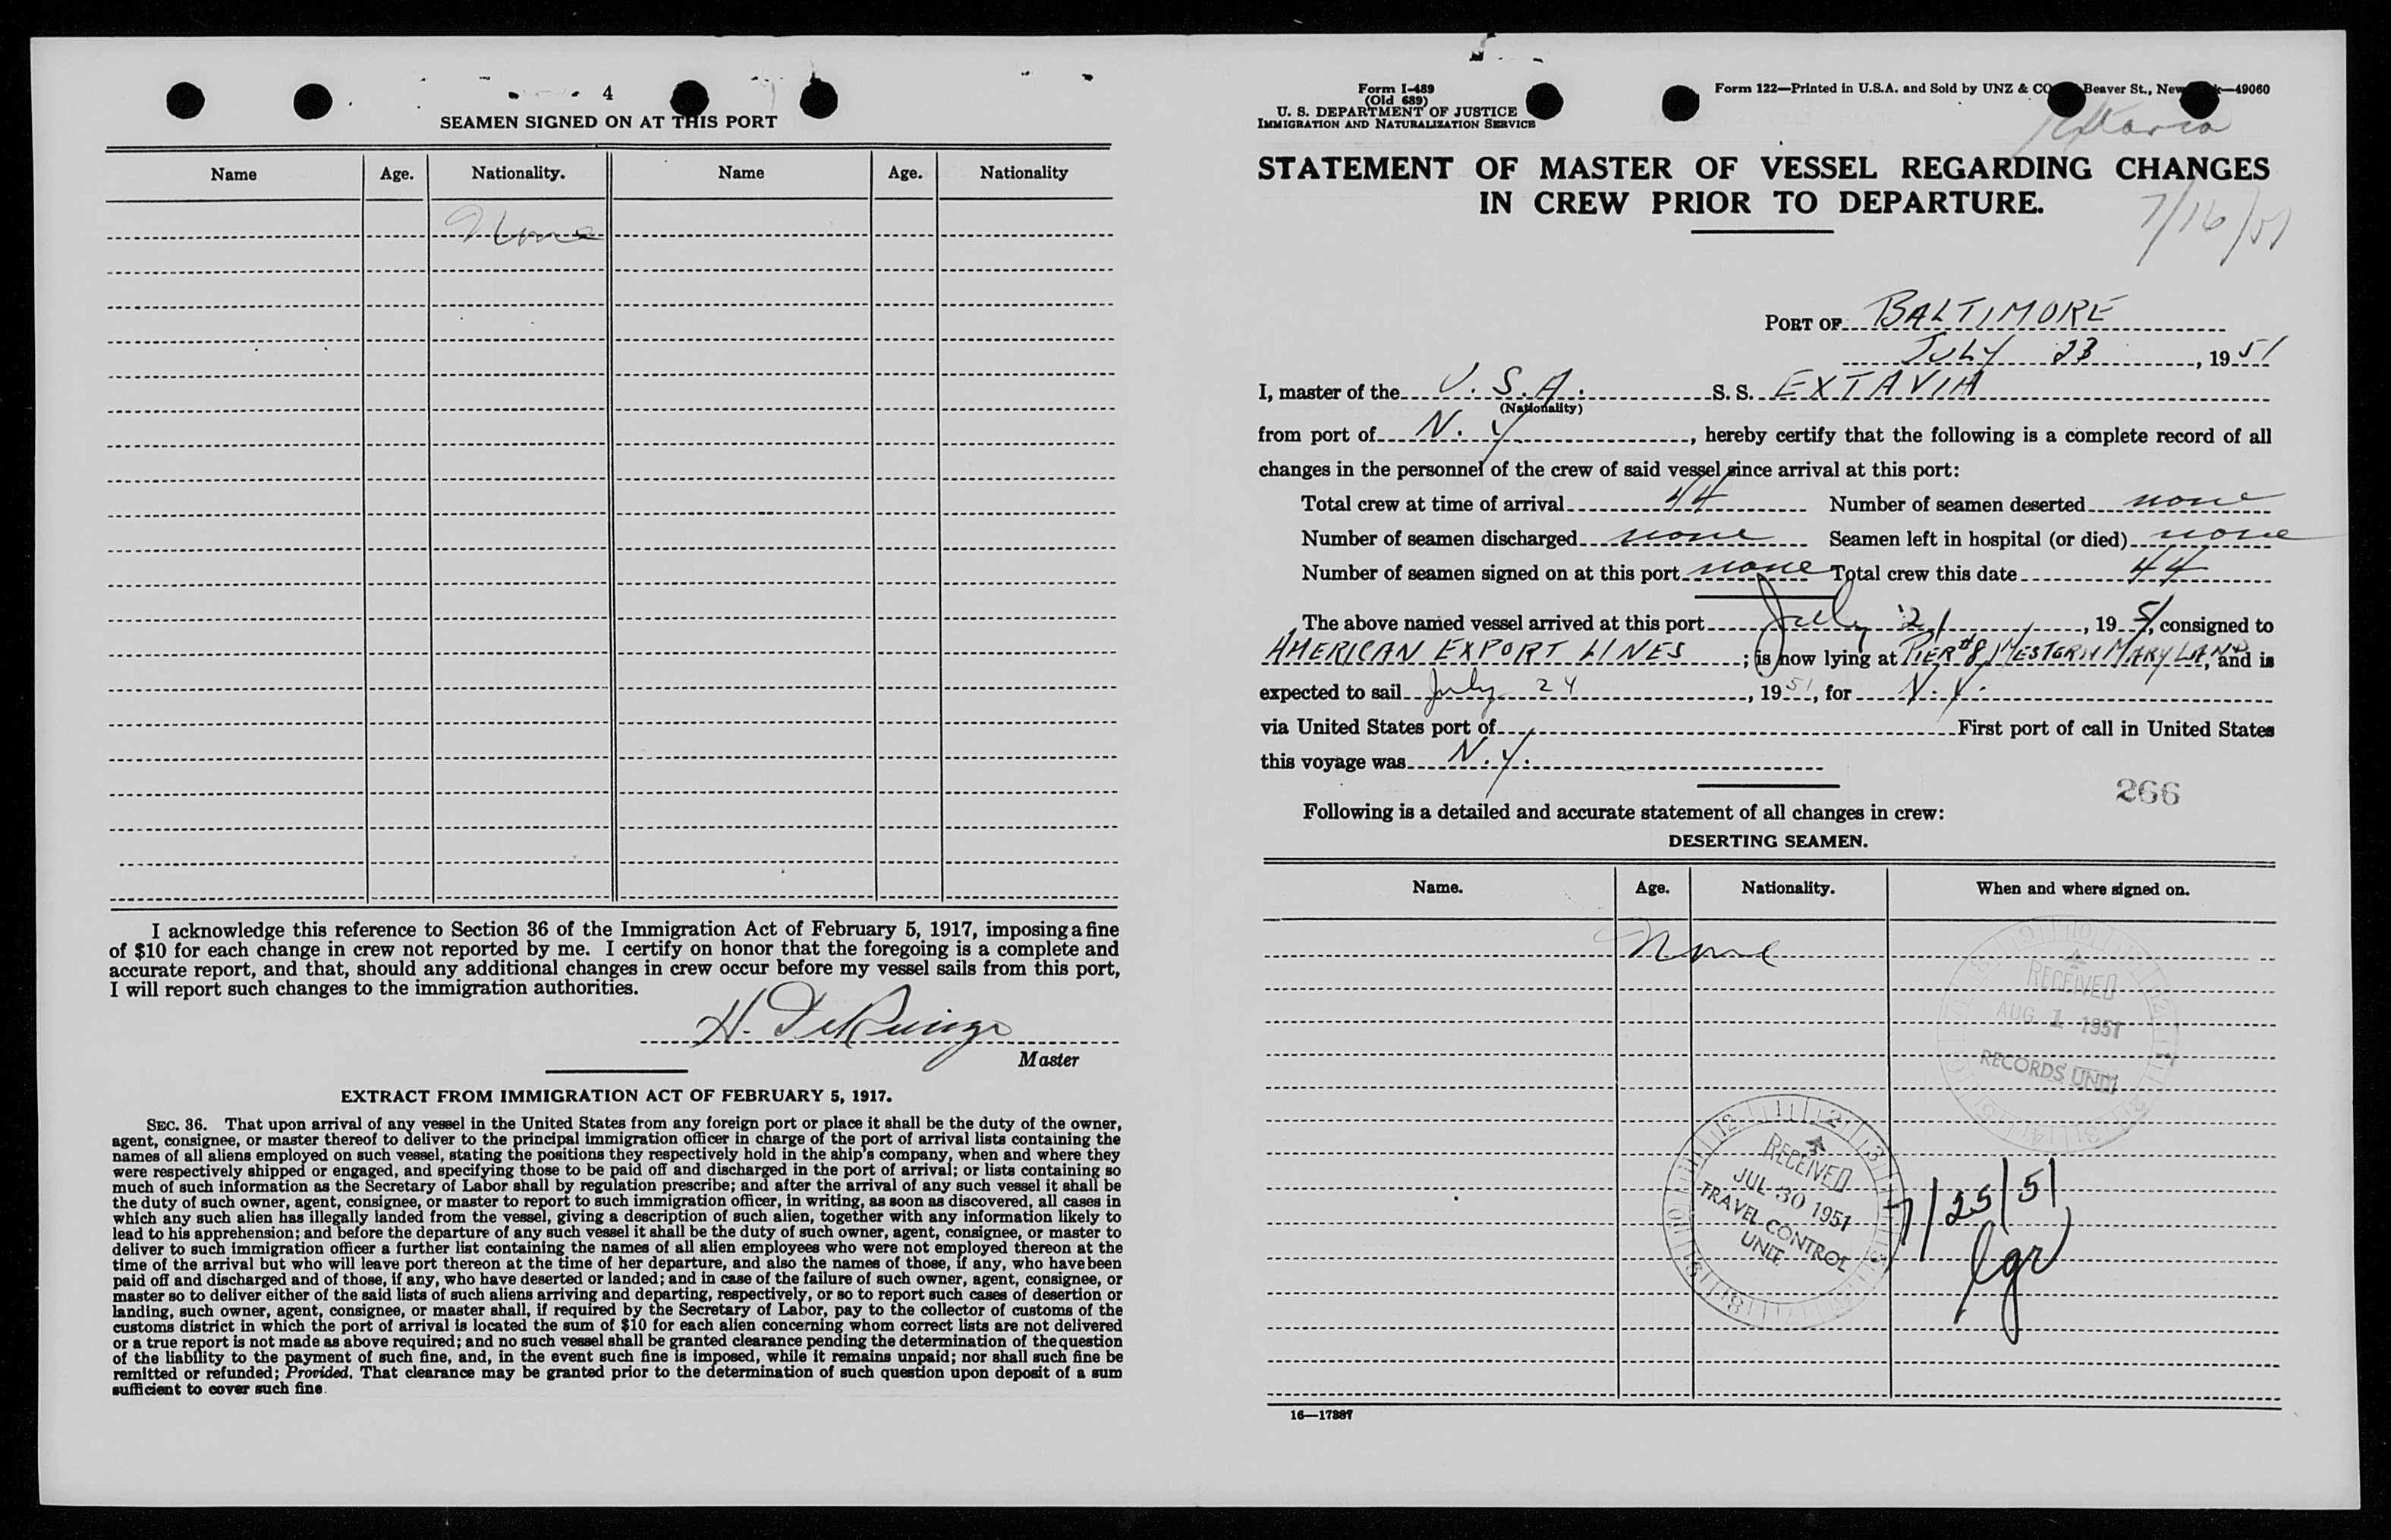 4
SEAMEN SIGNED ON AT THIS PORT
Name Age. Nationality. Name Age. Nationality
None
I acknowledge this reference to Section 36 of the Immigration Act of February 5, 1917, imposing a fine
of $10 for each change in crew not reported by me. I certify on honor that the foregoing is a complete and
accurate report, and that, should any additional changes in crew occur before my vessel sails from this port,
I will report such changes to the immigration authorities.
H.
Master
EXTRACT FROM IMMIGRATION ACT OF FEBRUARY 5, 1917.
SEC. 36. That upon arrival of any vessel in the United States from any foreign port or place it shall be the duty of the owner,
agent, consignee, or master thereof to deliver to the principal immigration officer in charge of the port of arrival lists containing the
names of all aliens employed on such vessel, stating the positions they respectively hold in the ship's company, when and where they
were respectively shipped or engaged, and specifying those to be paid off and discharged in the port of arrival; or lists containing so
much of such information as the Secretary of Labor shall by regulation prescribe; and after the arrival of any such vessel it shall be
the duty of such owner, agent, consignee, or master to report to such immigration officer, in writing, as soon as discovered, all cases in
which any such alien has illegally landed from the vessel, giving a description of such alien, together with any information likely to
lead to his apprehension; and before the departure of any such vessel it shall be the duty of such owner, agent, consignee, or master to
deliver to such immigration officer a further list containing the names of all alien employees who were not employed thereon at the
time of the arrival but who will leave port thereon at the time of her departure, and also the names of those, if any, who have been
paid off and discharged and of those, if any, who have deserted or landed; and in case of the failure of such owner, agent, consignee, or
master so to deliver either of the said lists of such aliens arriving and departing, respectively, or so to report such cases of desertion or
landing, such owner, agent, consignee, or master shall, if required by the Secretary of Labor, pay to the collector of customs of the
customs district in which the port of arrival is located the sum of $10 for each alien concerning whom correct lists are not delivered
or a true report is not made as above required; and no such vessel shall be granted clearance pending the determination of the question
of the liability to the payment of such fine, and, in the event such fine is imposed, while it remains unpaid; nor shall such fine be
remitted or refunded; Provided, That clearance may be granted prior to the determination of such question upon deposit of a sum
sufficient to cover such fine.
Form I-489
(Old 689)
U. S. DEPARTMENT OF JUSTICE
IMMIGRATION AND NATURALIZATION SERVICE
Form 122—Printed in U.S.A. and Sold by UNZ & CO Beaver St., New —49060
STATEMENT OF MASTER OF VESSEL REGARDING CHANGES
IN CREW PRIOR TO DEPARTURE.
7/16/51
PORT OF BALTIMORE
JULY 23, 1951
I, master of the U.S.A. S. S. EXTAVIA
(Nationality)
from port of N.Y., hereby certify that the following is a complete record of all
changes in the personnel of the crew of said vessel since arrival at this port:
Total crew at time of arrival 44 Number of seamen deserted none
Number of seamen discharged none Seamen left in hospital (or died) none
Number of seamen signed on at this port none Total crew this date 44
The above named vessel arrived at this port July 21, 1951, consigned to
AMERICAN EXPORT LINES; is now lying at PIER #8 WESTERN MARYLAND, and is
expected to sail July 24, 1951, for N.Y.
via United States port of First port of call in United States
this voyage was N.Y.
266
Following is a detailed and accurate statement of all changes in crew:
DESERTING SEAMEN.
Name. Age. Nationality. When and where signed on.
None
RECEIVED
AUG 1 1951
RECORDS UNIT
RECEIVED
JUL 30 1951
TRAVEL CONTROL
UNIT
7/25/51
16—17387